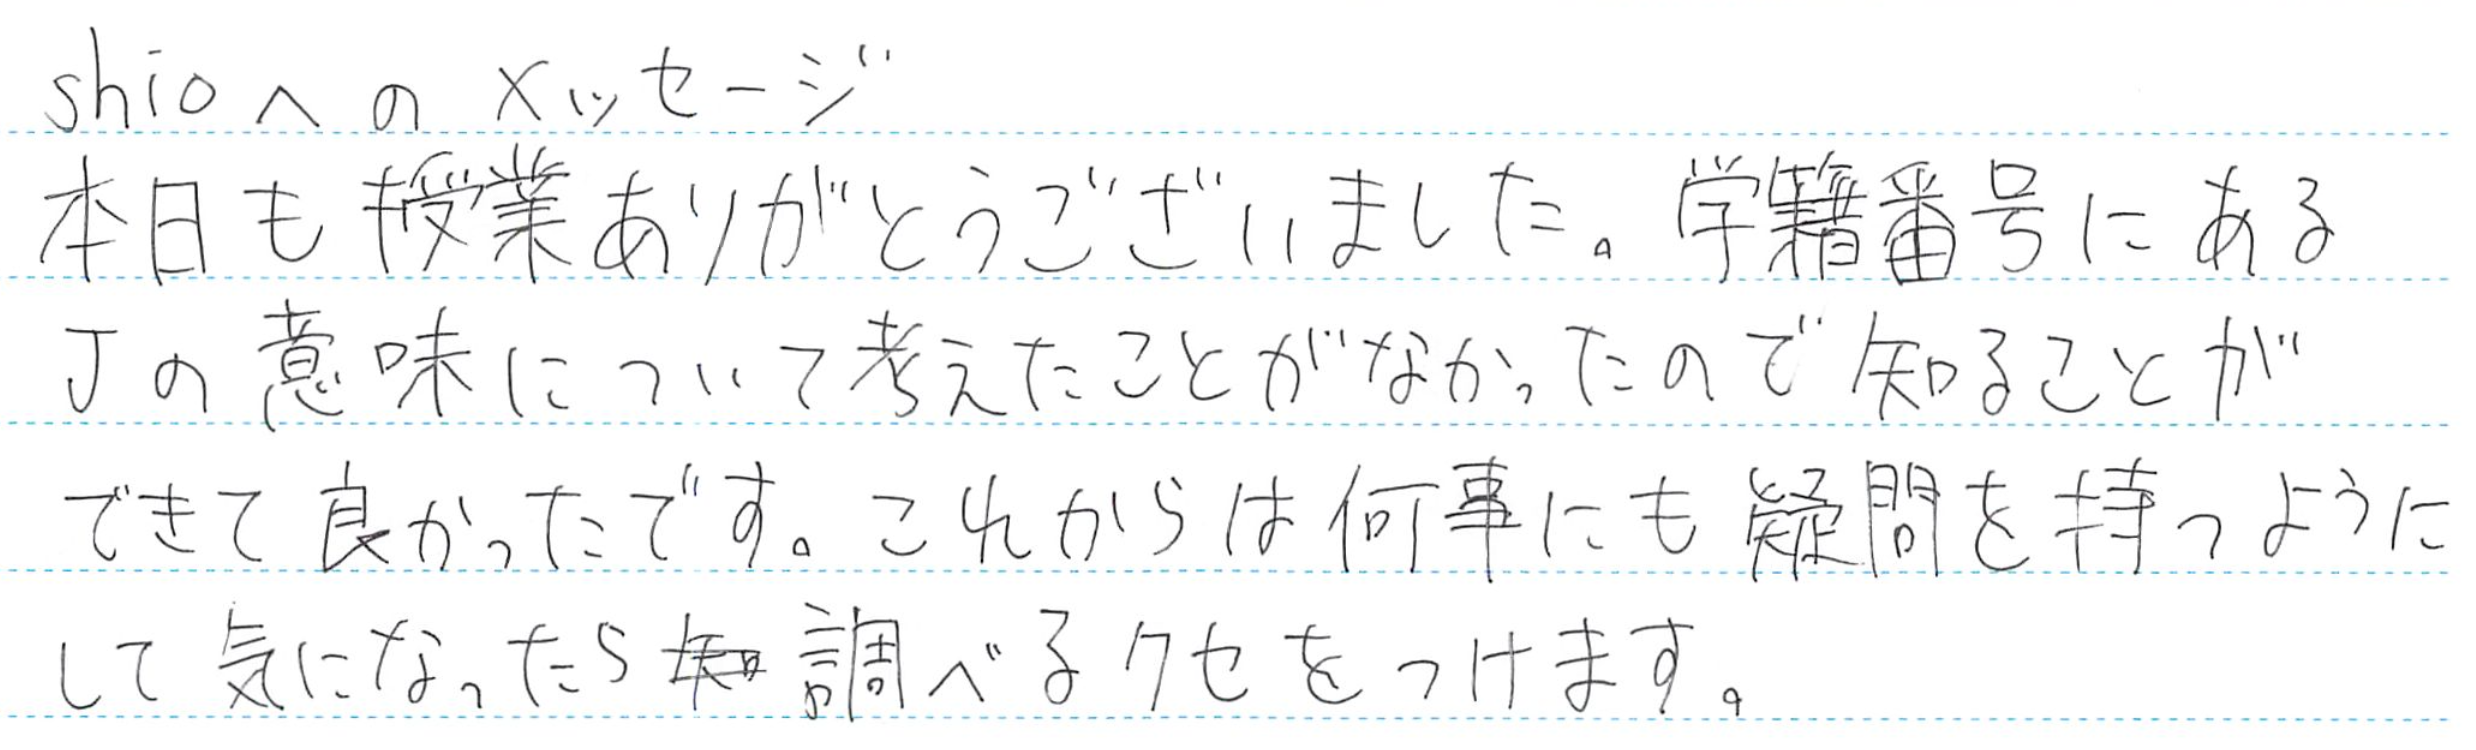 shioへのメッセージ
本日も授業ありがとうございました。学籍番号にある
Jの意味について考えたことがなかったので知ることが
できて良かったです。これからは何事にも疑問を持つように
して気になったら調べるクセをつけます。